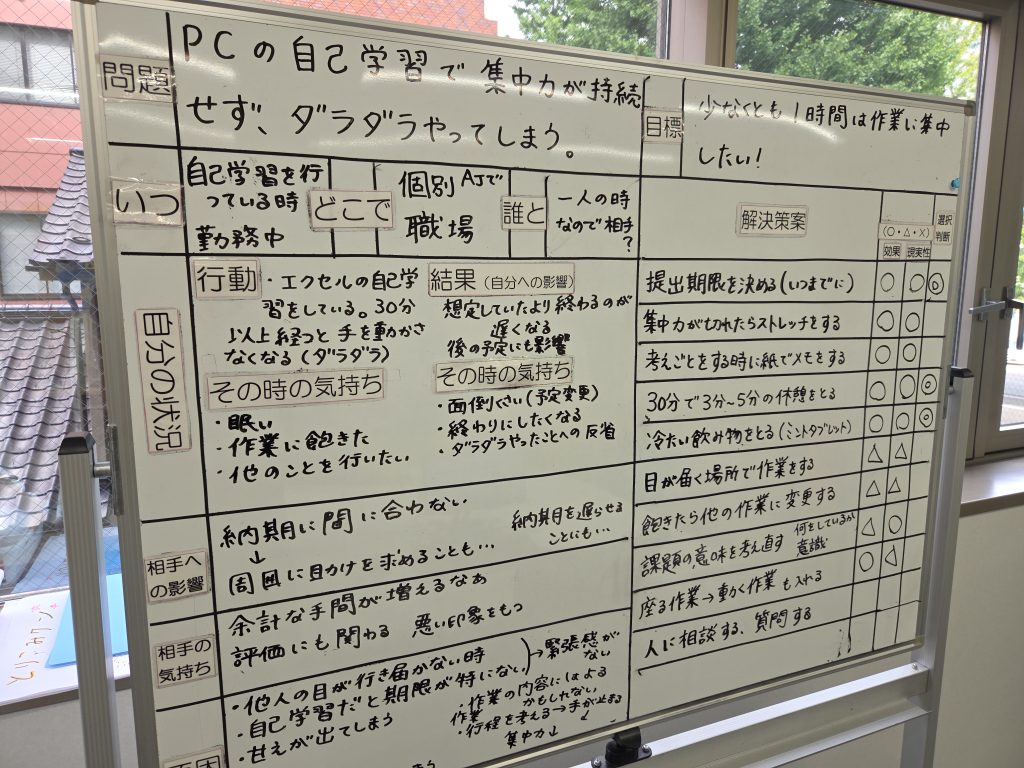 問題
PCの自己学習で集中力が持続
せず、ダラダラやってしまう。
目標
少なくとも!時間は作業に集中
したい!
いつ
自己学習を行
っている時
勤務中
どこで
個別 AJで
職場
誰と
一人の時
なので相手
?
自分の状況
行動
・エクセルの自己学
習をしている。30分
以上経つと手を動かさ
なくなる(ダラダラ)
その時の気持ち
・眠い
・作業に飽きた
・他のことを行いたい
結果(自分への影響)
想定していたより終わるのが
遅くなる
後の予定にも影響
その時の気持ち
・面倒くさい(予定変更)
・終わりにしたくなる
・ダラダラやったことへの反省
相手へ
の影響
納期に間に合わない
↓
周囲に助けを求めることも…
納期を遅らせる
ことにも…
相手の
気持ち
余計な手間が増えるなぁ
評価にも関わる 悪い印象をもつ
原因
・他人の目が行き届かない時
・自己学習だと期限が特にない
→緊張感が
ない
・甘えが出てしまう
・作業の内容にはよる
かもしれない
作業
・行程を考える→手が止まる
集中力↓
解決策案
(○・△・×)
効果
現実性
選択
判断
提出期限を決める(いつまでに) ○ ○ ◎
集中力が切れたらストレッチをする ○ ○
考えごとをする時に紙でメモをする ○ ○
30分で3分~5分の休憩をとる ○ ○ ◎
冷たい飲み物をとる(ミントタブレット) ○ ○ ◎
目が届く場所で作業をする △ △
飽きたら他の作業に変更する △ △
課題の意味を考え直す 何をしているか 意識 △ ○
座る作業→動かく作業も入れる ○ △
人に相談する、質問する